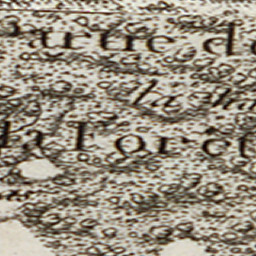 Partie de
la
la Forêt